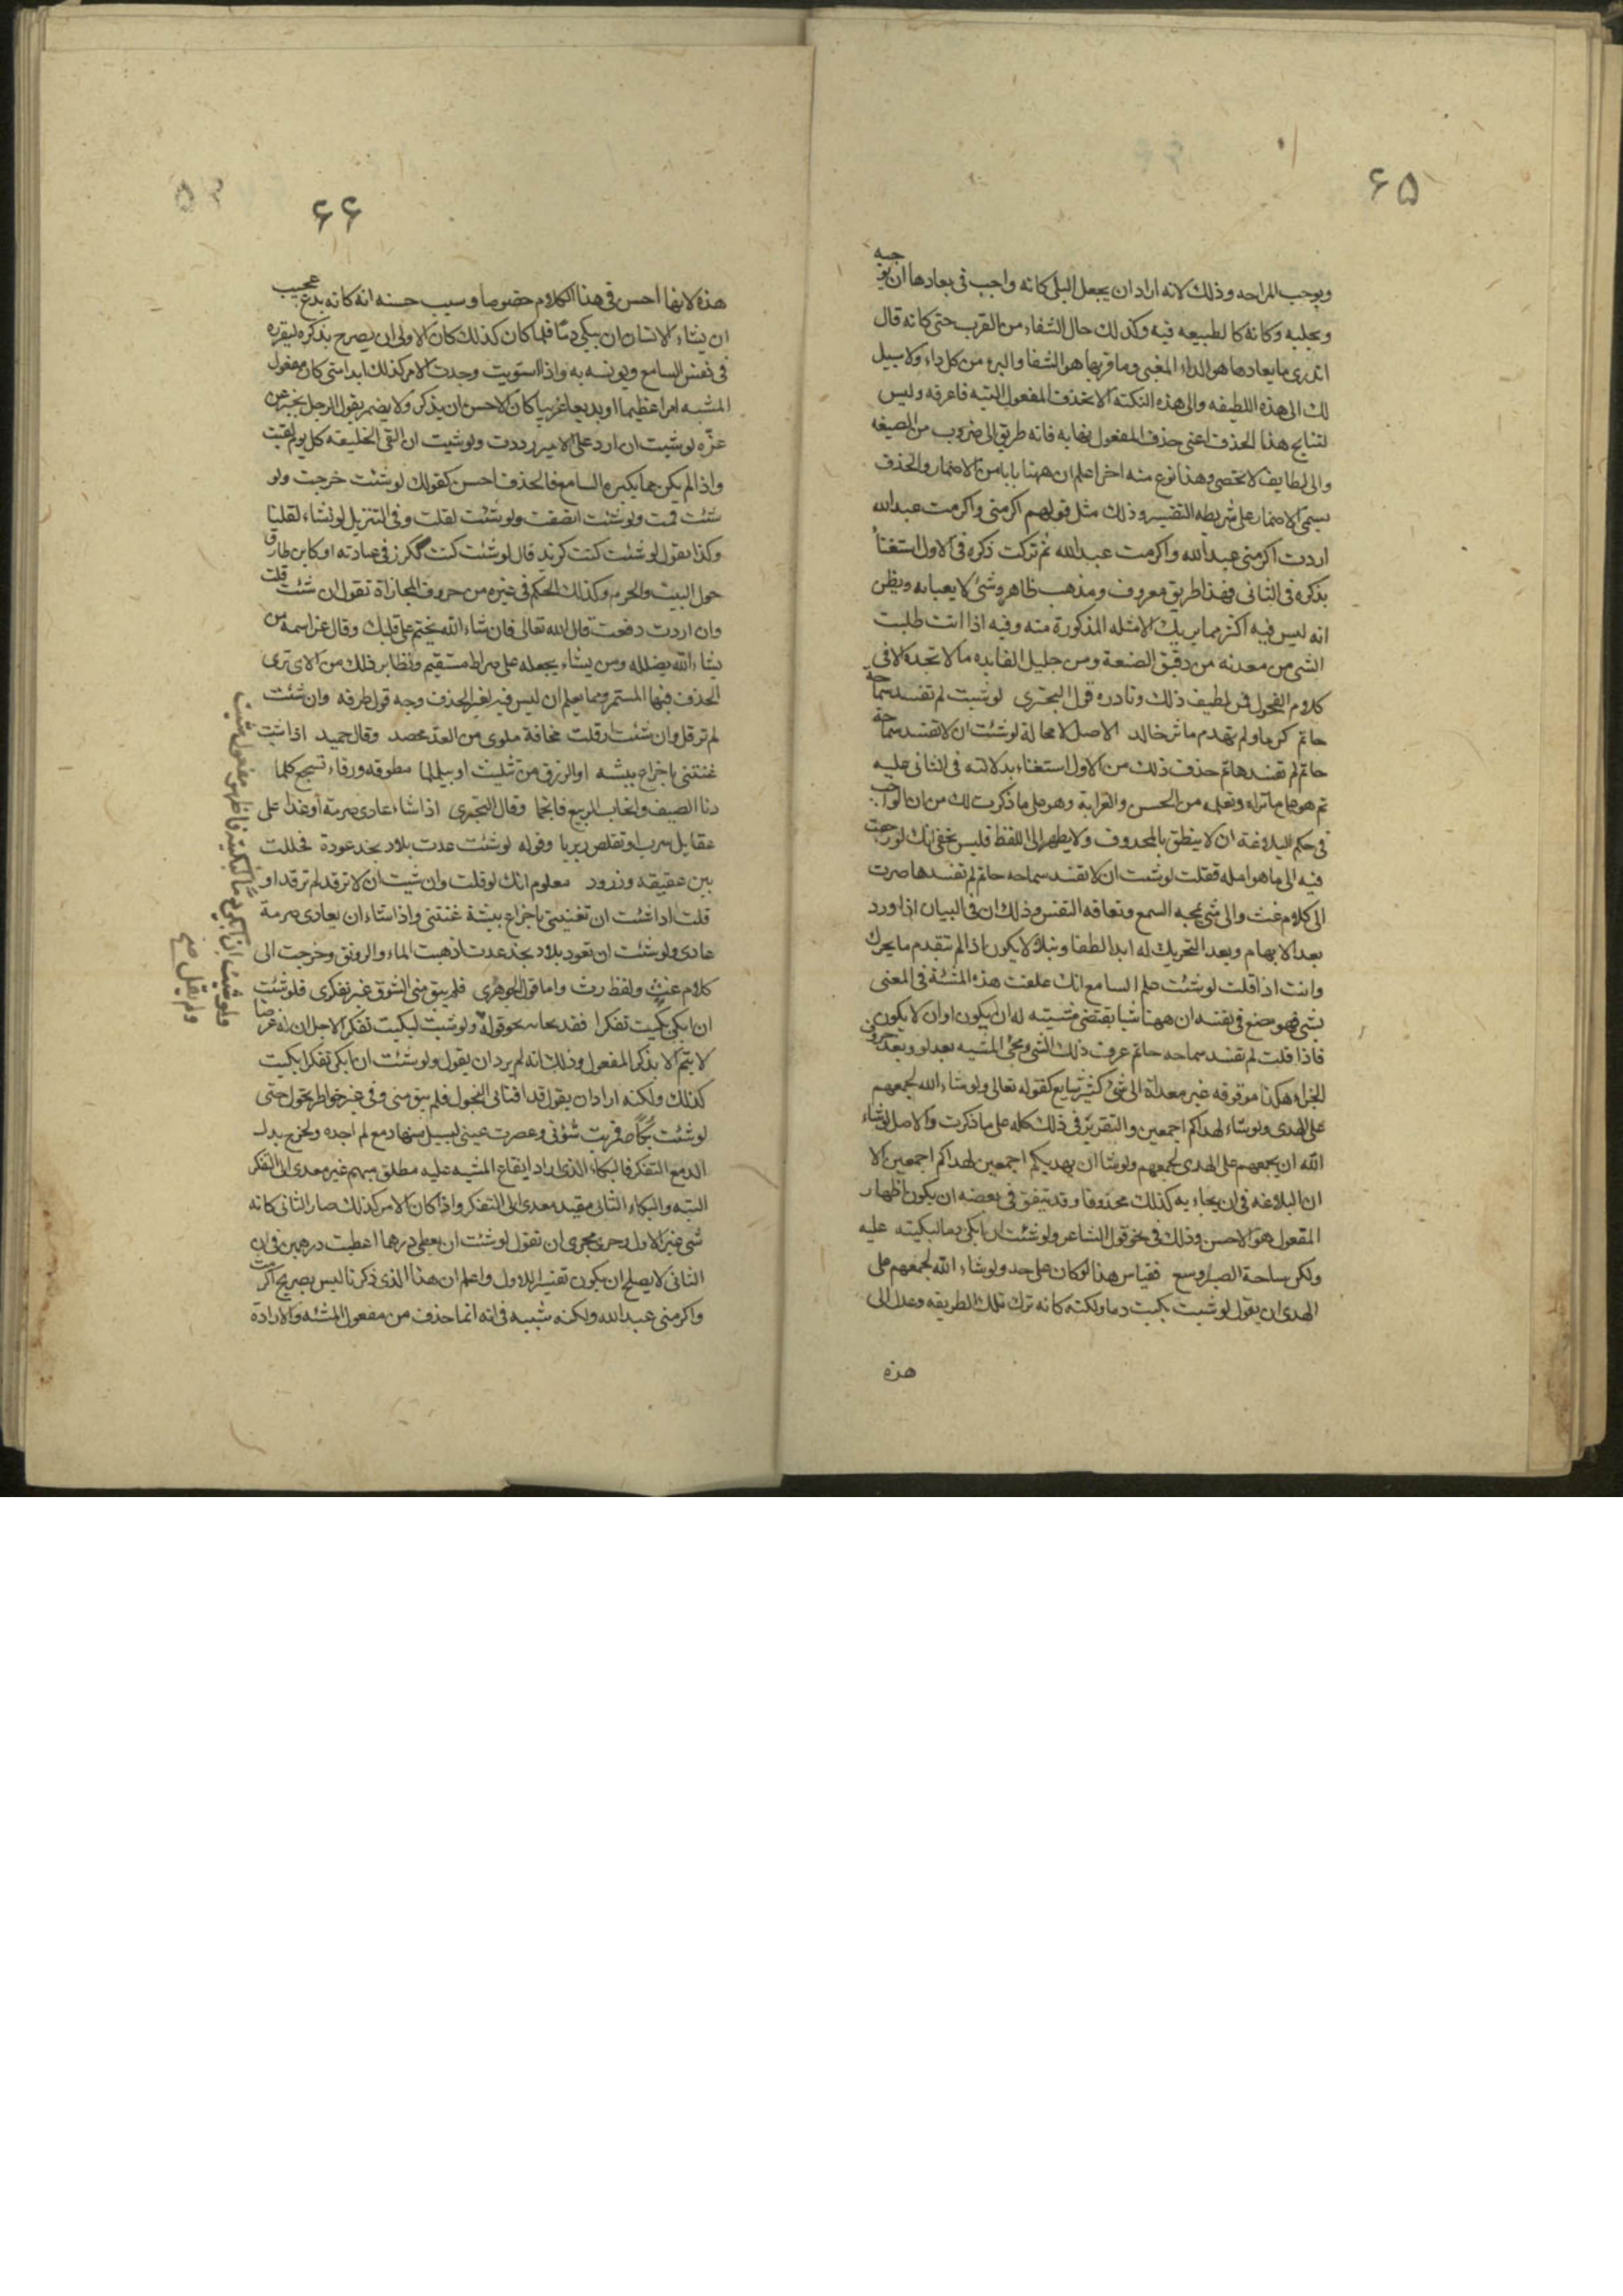 ۶۵
ويوجب المراحه وذلك لانه اراد ان يجعل البلى كانه واجب فى بعادها ان يوجبه
ويجلبه وكانه كالطبيعه فيه وكذلك حال الشفاء من القرب حتى كانه قال
اتدرى ما بعادها هو الداء المغنى وما قربها هو الشفا والبرء من كل داء ولا سبيل
لك الى هذه اللطيفه والى هذه النكته الا بحذف المفعول البته فاعرفه وليس
لنتايج هذا الحذف اعنى حذف المفعول نهايه فانه طريق الى ضروب من الصيغه
والى لطايف لا تحصى وهذا نوع منه اخر اعلم ان ههنا بابا من الاضمار والحذف
يسمى الاضمار على شريطه التفسير وذلك مثل قولهم اكرمنى واكرمت عبدالله
اردت اكرمنى عبدالله واكرمت عبدالله ثم تركت ذكره فى الاول استغناً
بذكره فى الثانى فهذا طريق معروف ومذهب ظاهر وشئ لا يعبا به ويظن
انه ليس فيه اكثر مما يريك الامثله المذكورة منه وفيه اذا انت طلبت
الشى من معدنه من دقيق الصنعة ومن جليل الفايده ما لا تجده الا فى
كلام الفحول فمن لطيف ذلك ونادره قول البحترى لو شيت لم تفسد سماحة
حاتم كرما ولم تهدم ماثر خالد الاصل لا محالة لو شئت ان لا تفسد سماحة
حاتم لم تفسدها ثم حذف ذلك من الاول استغناء بدلالته فى الثانى عليه
ثم هو على ما تراه وتعلمه من الحسن والغرابة وهو على ما ذكرت لك من ان الواجب
فى حكم البلاغة ان لا ينطق بالمحذوف ولا يظهر الى اللفظ فليس يخفى انك لو رجعت
فيه الى ما هو اصله فقلت لو شئت ان لا تفسد سماحه حاتم لم تفسدها صرت
الى كلام غث والى شئ يمجه السمع وتعافه النفس وذلك ان فى البيان اذا ورد
بعد الابهام وبعد التحريك له ابدا لطفا ونبلا لا يكون اذا لم يتقدم ما يحرك
وانت اذا قلت لو شئت علم السامع انك علقت هذه المشئة فى المعنى
بشى فهو يضع فى نفسه ان ههنا شيا تقتضى مشيته له ان يكون او ان لا يكون
فاذا قلت لم تفسد سماحه حاتم عرف ذلك الشى ومجئ المشيه بعد لو وبعد حروف
الجزاء هكذا موقوفه غير معداة الى شئ كثير شايع كقوله تعالى ولو شاء الله لجمعهم
على الهدى ولو شاء لهداكم اجمعين والتقرير فى ذلك كله على ما ذكرت والاصل لو شاء
الله ان يجمعهم على الهدى لجمعهم ولو شا ان يهديكم اجمعين لهداكم اجمعين الا
ان البلاغه فى ان يجاء به كذلك محذوفا وقد يتفق فى بعضه ان يكون اظهار
المفعول هو الاحسن وذلك فى نحو قول الشاعر ولو شئت ان ابكى دما لبكيته عليه
ولكن ساحة الصبر اوسع فقياس هذا لو كان على حد ولو شاء الله لجمعهم على
الهدى ان يقول لو شيت بكيت دما ولكنه كانه ترك تلك الطريقه وعدل الى
هذه
۶۶
هذه لانها احسن فى هذا الكلام خصوصا وسبب حسنه انه كانه بدع عجيب
ان يشاء الانسان ان يبكى دمًا فلما كان كذلك كان الاولى ان يصرح بذكره ليقرره
فى نفس السامع ويونسه به واذا استويت وجدت الامر كذلك ابدا متى كان مفعول
المشيه امرا عظيما او بديعا غريبا كان الاحسن ان يذكر ولا يضمر يقول الرجل يخبر عن
عزّه لو شيت ان ارد على الامير رددت ولو شيت ان القى الخليفه كل يوم لقيت
واذا لم يكن مما يكبره السامع فالحذف احسن كقولك لو شئت خرجت ولو
شئت قمت ولو شئت انصفت ولو شئت لقلت وفى التنزيل لو نشاء لقلنا
وكذا يقول لو شئت كنت ككرز فى عبادته او كابن طارق
حول البيت والحرم وكذلك الحكم فى غيره من حروف المجازاة تقول ان شئت قلت
وان اردت دفعت قال الله تعالى فان يشاء الله يختم على قلبك وقال عز اسمه من
يشاء الله يضلله ومن يشاء يجعله على صراط مستقيم ونظاير ذلك من الاى ترى
الحذف فيها المستمر ومما يعلم ان ليس فيه لغير الحذف وجه قول طرفه وان شئت
لم ترقل وان شئت ارقلت مخافة ملوى من القد محصد وقال حميد اذا شيت
غنتنى باجزاع بيشه او الزرق من تثليث او بيلملما مطوقه ورقاء تسجع كلما
دنا الصيف وانجاب الربيع فانجما وقال البحترى اذا شاء عادى صرمة أو غدا على
عقايل سرب او تقنص ربربا وقوله لو شئت عدت بلاد نجد عودة فحللت
بين عقيقه وزرود معلوم انك لو قلت وان شيت ان لا ترقد لم ترقد او
قلت اذا شئت ان تغنينى باجزاع بيشة غنتنى واذا شاء ان يعادى صرمة
عادى ولو شئت ان تعود بلاد نجد عدت اذهبت الماء والرونق وخرجت الى
كلام غث ولفظ رث واما قول الجوهرى فلم يبق منى الشوق غير تفكرى فلو شئت
ان ابكى بكيت تفكرا فقد نحا به نحو قوله ولو شيت لبكيت تفكرا لاجل ان له غرضا
لا يتم الا بذكر المفعول وذلك انه لم يرد ان يقول ولو شئت ان ابكى تفكرا بكيت
كذلك ولكنه اراد ان يقول قد افنانى النحول فلم يبق منى وفى غير خواطر تجول حتى
لو شئت بكاً فمريت شؤنى وعصرت عينى ليسيل منها دمع لم اجده ولخرج بدل
الدمع التفكر فالبكاء الذى اراد ايقاع المشيه عليه مطلق مبهم غير معدى الى التفكر
البته والبكاء الثانى مقيد معدى الى التفكر واذا كان الامر كذلك صار الثانى كانه
شى غير الاول وجرى مجرى ان تقول لو شئت ان يعطى درهما اعطيت درهمين فى ان
الثانى لا يصلح ان يكون تفسيرا للاول واعلم ان هذا الذى ذكرنا ليس بصريح اكرمت
واكرمنى عبد الله ولكنه شبيه فى انه انما حذف من مفعول المشئه والارادة
ولو شئت ان ابكى دما لبكيته فاظهر مفعول شيت
ولم يقل صح